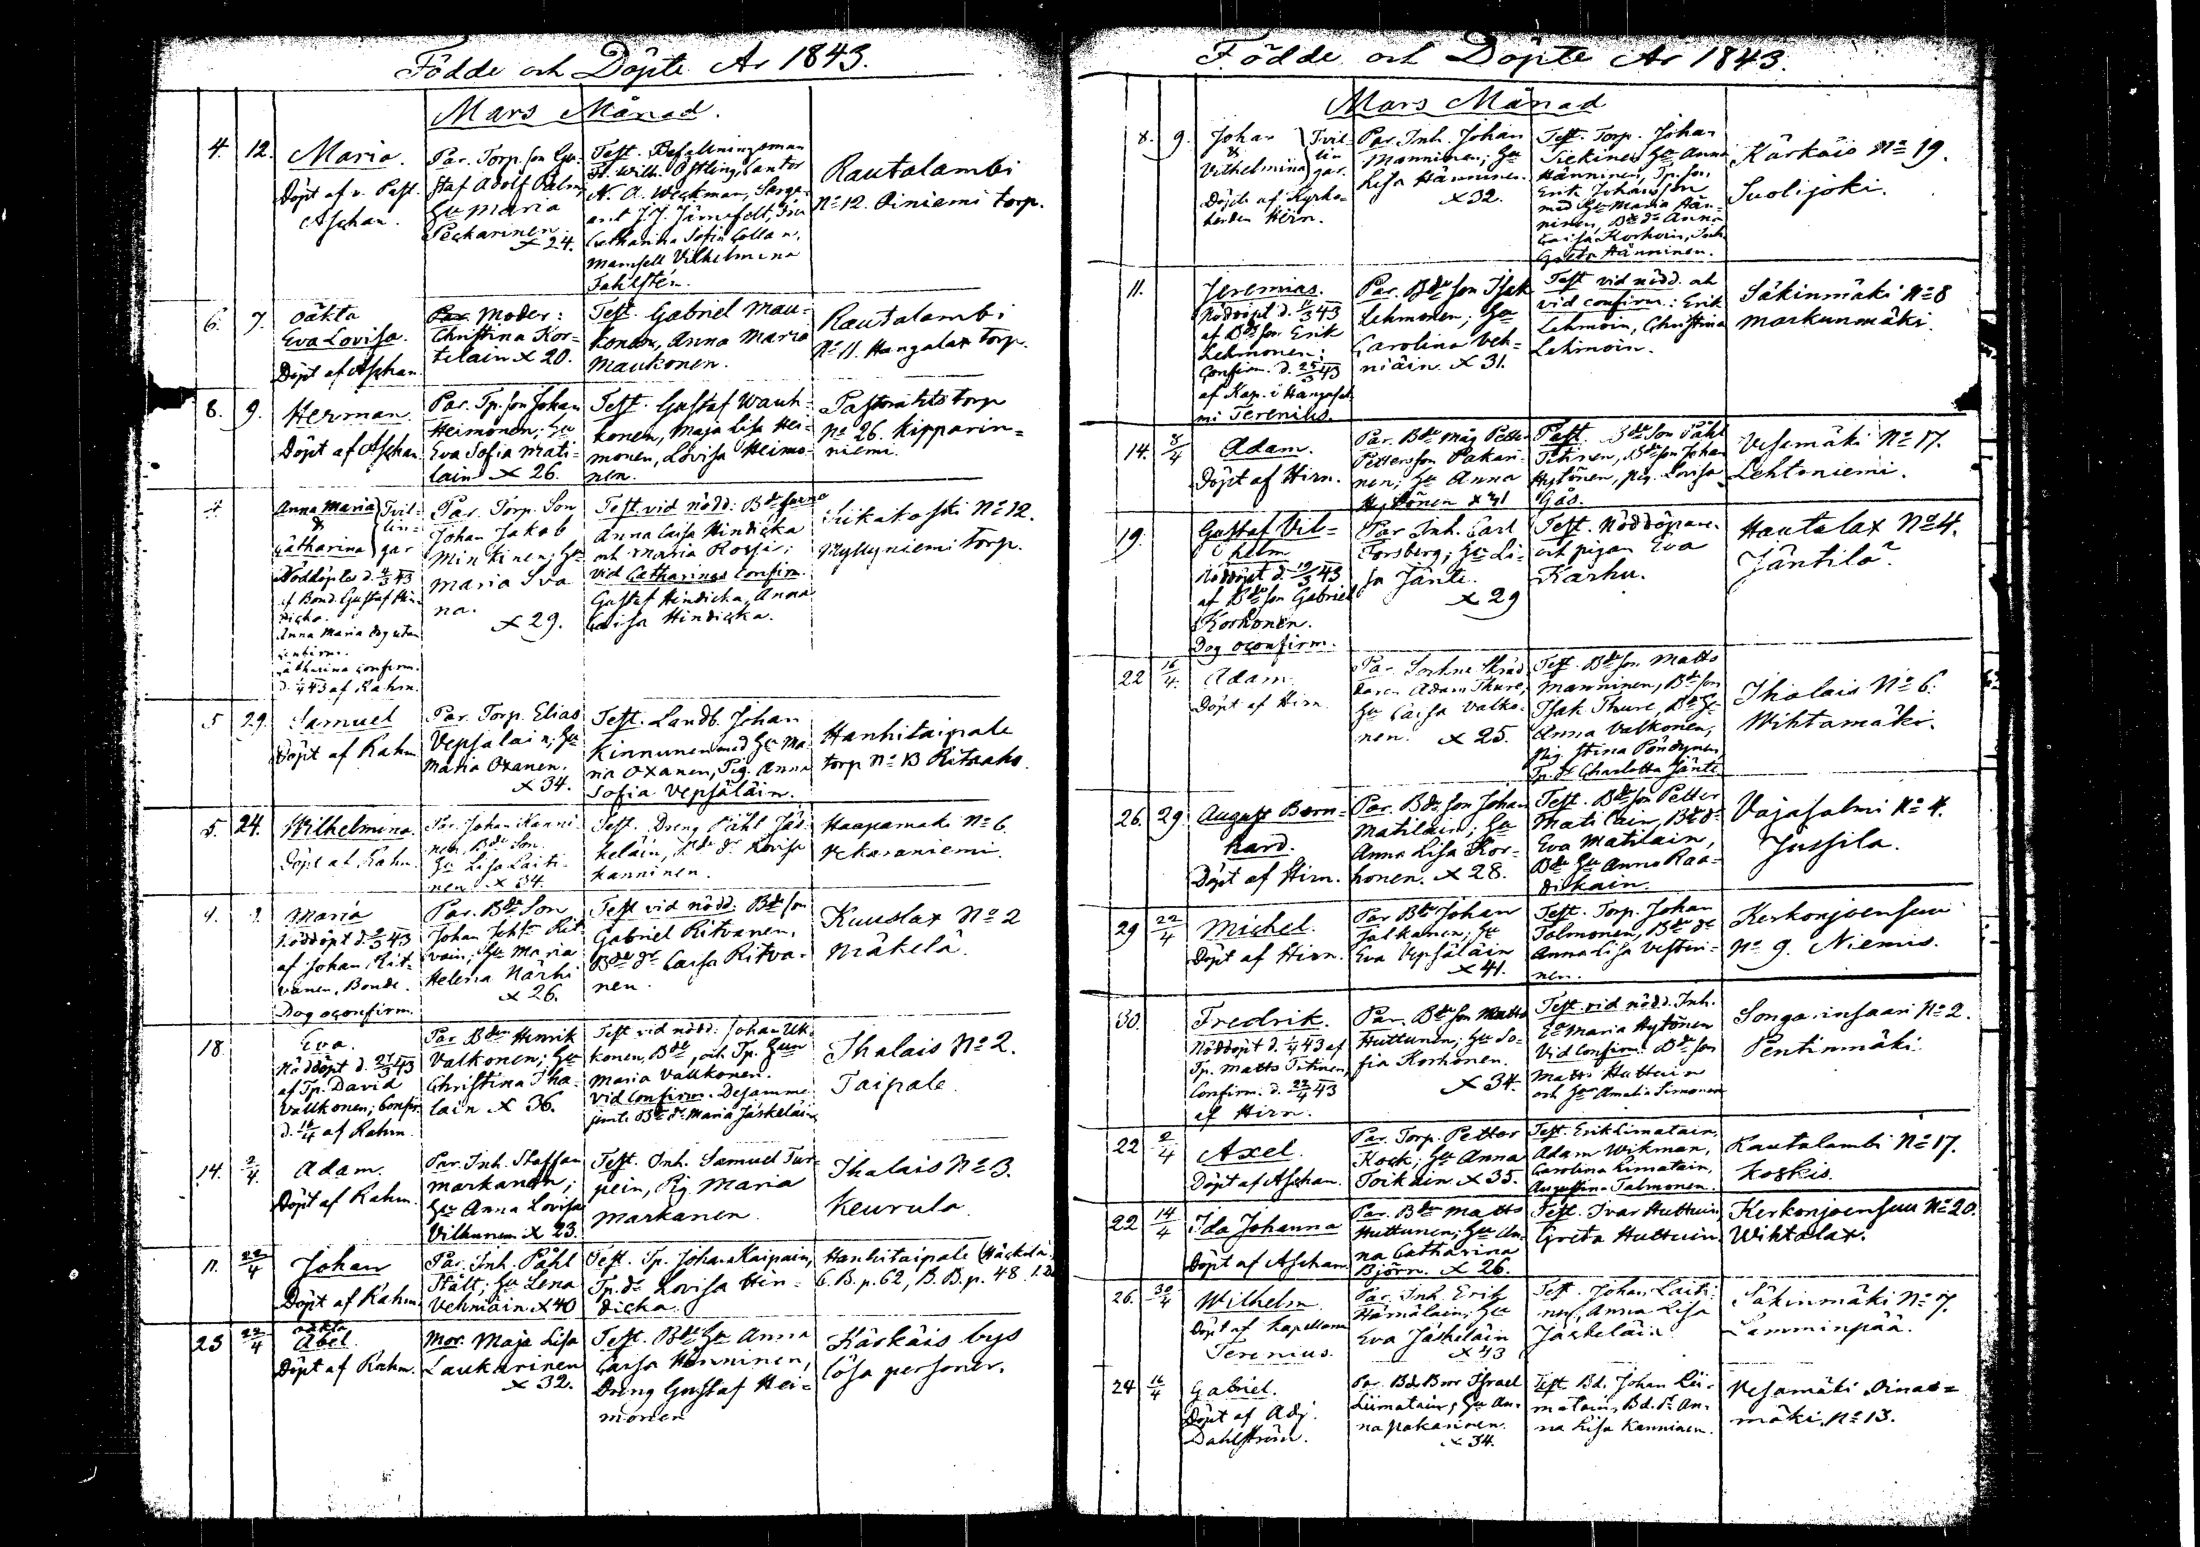 Födde och Döpte År 1843.
Mars Månad.
4. 12. Maria.
Döpt af v. Past.
Aschan.
Par. Torp. son Gu-
staf Adolf Palm,
Hu Maria
Pekarinen
x 24.
Test. Befallningsman
Fr. Wilh. Östling, Cantor
A. A. Weckman, Serge-
ant J. J. Järnefelt, Fru
Catharina Sofia Collan,
Mamsell Vilhelmina
Fahlstén.
Rautalambi
No 12. Piniemi torp.
6. 7. oäkta
Eva Lovisa.
Döpt af Aschan
Moder:
Christina Kor-
telain x 20.
Test. Gabriel Mau-
konen, Anna Maria
Maukonen.
Rautalambi
No 11. Hangalax torp.
8. 9. Herman.
Döpt af Aschan
Par. Tp. son Johan
Heimonen; Hu
Eva Sofia Mati-
lain x 26.
Test. Gustaf Wauh-
konen, Maja Lisa Hei-
monen, Lovisa Heimo-
nen.
Pastorattstorp
No 26. Kipparin-
niemi.
Anna Maria
&
Catharina
Tvil-
lin-
gar
Nöddöptes d. 4/3 43
af Bond. Gustaf Hin-
dicka.
Anna Maria dog utan
confirm.
Catharina confirm.
af Rahm.
Par. Torp. Son
Johan Jakob
Minkinen; Hu
Maria Sva
na.
x 29.
Test vid nödd: Bde
Anna Caisa Hindicka
och Maria Rossi;
vid Catharinas confirm.
Gustaf Hindicka, Anna
Caisa Hindicka.
Siikakoski No 12.
Myllyniemi torp.
5 29. Samuel
Döpt af Rahm
Par. Torp. Elias
Vepsälain; Hu
Maria Oxanen.
x 34.
Test. Landb. Johan
Kinnunen med Hu Ma-
ria Oxanen, Pig. Anna
Sofia Vepsäläin.
Hanhitaipale
torp No 13 Ritoaho.
5. 24. Wilhelmina.
Döpt af Rahm.
Par. Johan Kanni-
nen, Bde Son.
Hu Lisa Laiti-
nen x 34.
Test. Dreng Påhl Jäs-
keläin, Bde dr Lovisa
Kanninen.
Haapamäki No 6
Vekaraniemi.
4. Maria
Nöddöpt
af Johan Rit-
vanen, Bonde.
Dog oconfirm.
Par. Bde Son
Johan Rit
vain; Hu Maria
Helena Närhi
x 26.
Test vid nödd: Bde son
Gabriel Ritvanen,
Bde dr Caisa Ritva-
nen.
Kuuslax No 2
Mäkelä.
18. Eva.
Nöddöpt d. 27/3 43
af Tp. David
Valkonen; Confir.
af Rahm.
Par Bden Henrik
Valkonen; Hu
Christina Tha-
lain x 36.
Test vid nödd: Johan Uk-
konen, Bde, och Tp. Hun
Maria Valkonen.
Vid Confirm. Desamme
jemte Bde dr Maria Jäskeläin
Thalais No 2.
Taipale.
14. 2/4. Adam.
Döpt af Rahm.
Par. Inh. Staffan
Markanen;
Hu Anna Lovisa
Vilhunen x 23.
Test. Inh. Samuel Tur-
pein, Pig. Maria
Markanen.
Thalais No 3.
Keurula.
11. 22/4 Johan
Döpt af Rahm.
Par. Inh. Påhl
Stält; Hu Lena
Vehniäin x 40
Test. Tp. Johan Kaipain,
Tp. dr Lovisa Hin-
dicka.
Hanhitaipale
C. B. p. 62, B. B. p. 48
23 22/4 oäkta
Abel.
Döpt af Rahm.
Mor. Maja Lisa
Laukarinen
x 32.
Test. Bde Hu Anna
Caisa Hänninen,
Dreng Gustaf Hei-
monen
Kärkäis bys
lösa personer.
Födde och Döpte År 1843.
Mars Månad
8. 9. Johan
&
Vilhelmina
Tvil-
lin-
gar.
Döpte af Kyrko-
herden Hirn.
Par. Inh. Johan
Manninen; Hu
Lisa Hänninen.
x 32.
Test. Torp. Johan
Tiekinen, Hu Anna
Hänninen, Tp. son
Erik Johansson
med Hu Maria Hän-
ninen, Bde dr Anna
Caisa Korhoin, Inh.
Greta Hänninen.
Kärkäis No 19.
Suolijoki.
11. Jeremias.
Nöddöpt
af Bde son Erik
Lehmonen;
Confirm. d. 25/3 43
af Kap. i Hangasni-
mi Terenius.
Par. Bde son Isak
Lehmonen; Hu
Carolina Veh-
niäin. x 31.
Test vid nödd. och
vid confirm.: Erik
Lehmoin, Christina
Lehmoin.
Säkinmäki No 8
Markunmäki.
14. 8/4 Adam.
Döpt af Hirn.
Par. Bde måg Petter
Pettersson Pakari-
nen; Hu Anna
Hytönen x 31
Test. Bde son Påhl
Titinen, Bde son Johan
Hytönen, pig. Lovisa
Gås.
Vesemäki No 17.
Lehtoniemi.
19. Gustaf Vil-
helm
Nöddöpt d. 19/3 43
af Bde son Gabriel
Korhonen.
Dog oconfirm.
Par Inh. Carl
Forsberg; Hu Li-
sa Jänte.
x 29
Test. Nöddöparen
och pigan Eva
Karhu.
Hautalax No 4.
Jäntilä
22 16/4. Adam
Döpt af Hirn.
Par. Sockne Skräd-
daren Adam Thure,
Hu Caisa Valko-
nen. x 25.
Test. Bde son Matts
Manninen, Bde son
Isak Thure, Bde Hu
Anna Valkonen,
Pig Stina Pöndynen
Tp. dr Charlotta Jänte
Thalais No 6.
Wihtamäki.
26. 29. August Bern-
hard.
Döpt af Hirn.
Par. Bde son Johan
Matilain; Hu
Anna Lisa Kor-
honen. x 28.
Test. Bde son Petter
Matilain, Bde dr
Eva Matilain,
Bde Hu Anna Raa-
tikain.
Vajasalmi No 4.
Jussila.
29 22/4 Michel.
Döpt af Hirn.
Par Bde Johan
Jalkanen; Hu
Eva Vepsäläin
x 41.
Test. Torp. Johan
Tolmonen, Bde dr
Anna Lisa Vesteri-
nen.
Kerkonjoensuu
No 9. Niemis.
30. Fredrik.
Nöddöpt d. 1/4 43 af
Tp. Matts Titinen,
Confirm. d. 22/4 43
af Hirn.
Par. Bde son Matts
Huttunen; Hu So-
fia Korhonen.
x 34.
Test vid nödd. Inh.
Ea Maria Hytönen
Vid Confirm: Bde son
Matts Huttuin
och Hu Amalia Simonen
Songarinsaari No 2.
Pentinmäki.
22 2/4 Axel.
Döpt af Aschan.
Par. Torp. Petter
Kock; Hu Anna
Toikain. x 35.
Test. Erik Limatain,
Adam Wikman,
Carolina Limatain,
Augustina Talmonen.
Rautalambi No 17.
Koskis.
22 14/4 Ida Johanna
Döpt af Aschan
Par. Bde Matts
Huttunen; Hu An-
na Catharina
Björn. x 26.
Test. Ivar Huttuin,
Greta Huttuin
Kerkonjoensuu No 20.
Wihtalax.
26. 30/4 Wilhelm.
Döpt af Kapellanen
Terenius.
Par. Inh. Erik
Hämäläin; Hu
Eva Jäskeläin
x 43
Test. Johan Laiti-
nen, Anna Lisa
Jäskeläin
Säkinmäki No 7.
Lamminpää.
24 16/4 Gabriel.
Döpt af Adj.
Dahlström.
Par. Bd. Bror Israel
Liimatain; Hu An-
na Pakarinen.
x 34.
Test. Bd. Johan Lii-
matain, Bd. dr An-
na Lisa Kanninen.
Vesamäki Oinas-
mäki. No 13.